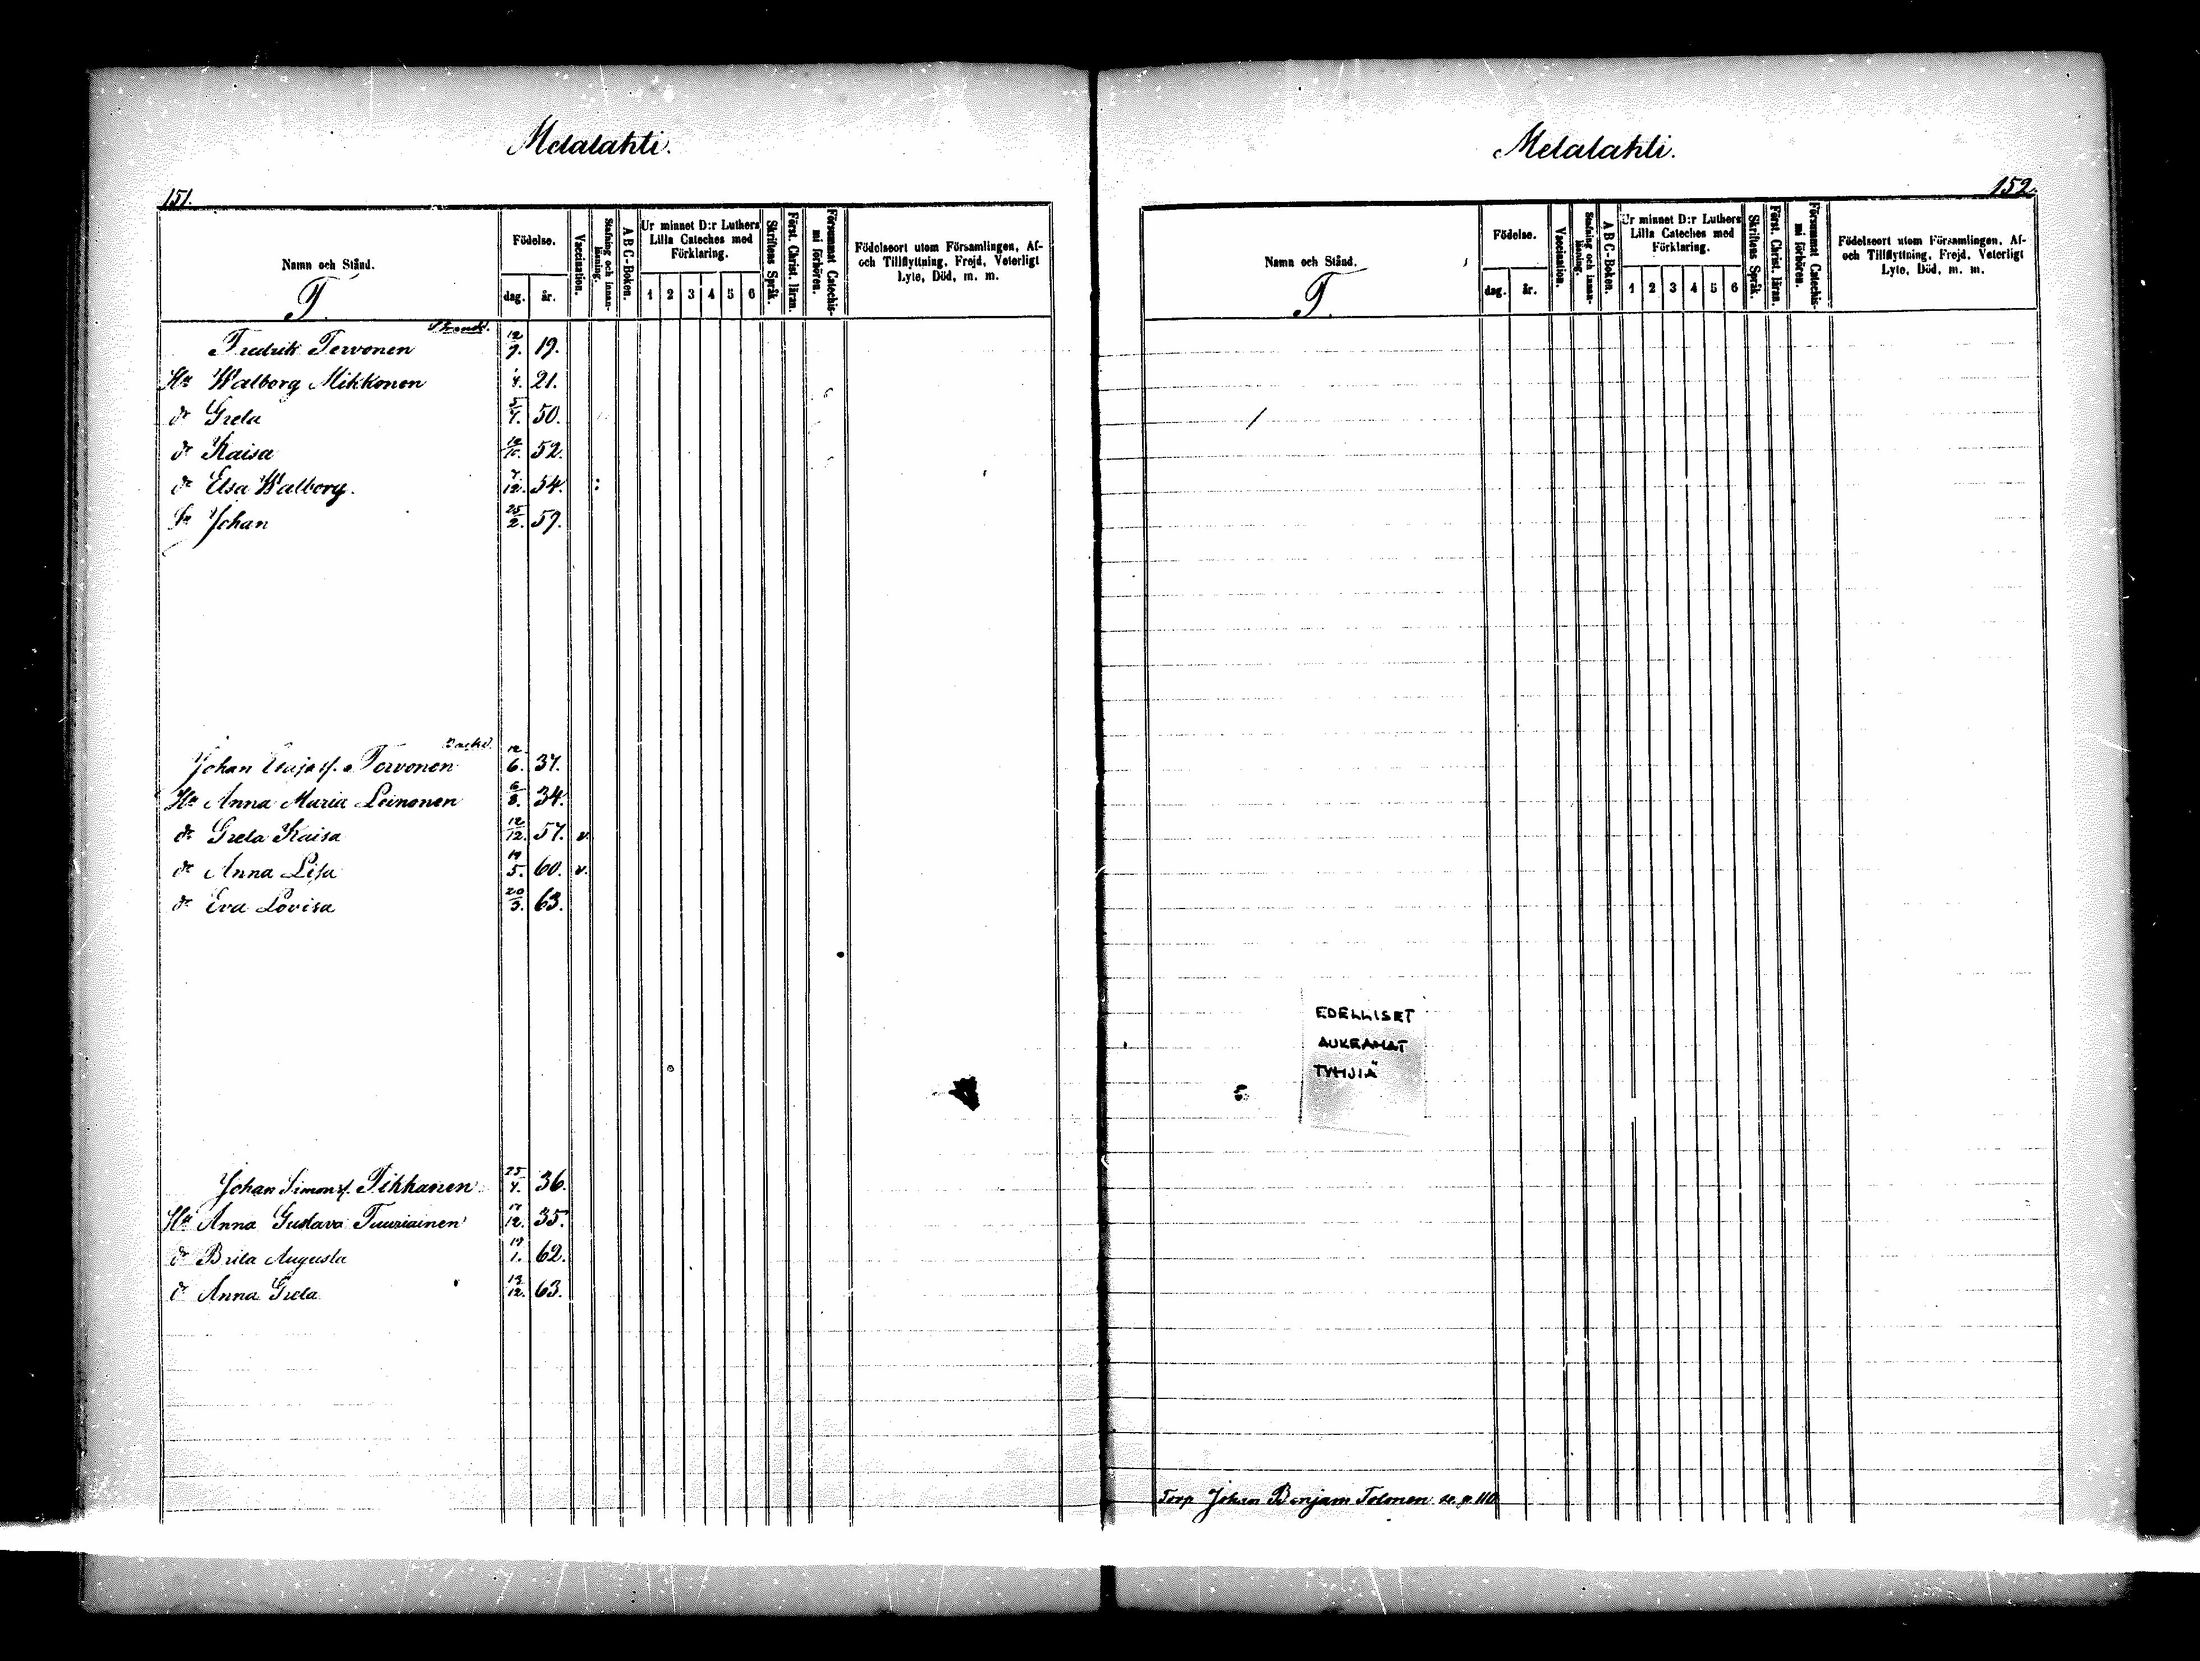 Melalahti.
151.
Namn och Stånd.
T.
Födelse.
dag. år.
Vaccination.
Stafning och innan-läsning.
ABC-Boken.
Ur minnet D:r Luthers Lilla Cateches med Förklaring.
1 2 3 4 5 6
Skriftens Språk.
Först. Christ. läran.
Försummat Catechis-mi förhören.
Födelseort utom Församlingen, Af-
och Tillflyttning, Frejd, Veterligt
Lyte, Död, m. m.
Fredrik Tervonen 12/9. 19.
Hu Walborg Mikkonen 21.
dr Greta 50.
dr Kaisa 52.
dr Elsa Walborg. 7/12. 54.
Sn Johan 25/2. 59.
Johan Tervonen 12/6. 37.
Hu Anna Maria Leinonen 6/8. 34.
dr Greta Kaisa 12/12. 57. v.
dr Anna Lisa 19/5. 60. v.
dr Eva Lovisa 20/3. 63.
Johan Simonss. Tikkanen 25/4. 36.
Hu Anna Gustava Tuuriainen 17/12. 35.
dr Brita Augusta 19/1. 62.
dr Anna Greta 63.
Melalahti.
152.
Namn och Stånd.
T.
Födelse.
dag. år.
Vaccination.
Stafning och innan-läsning.
ABC-Boken.
Ur minnet D:r Luthers
Lilla Cateches med
Förklaring.
1 2 3 4 5 6
Skriftens Språk.
Först. Christ. läran.
Försummat Catechis-mi förhören.
Födelseort utom Församlingen, Af-
och Tillflyttning, Frejd, Veterligt
Lyte, Död, m. m.
EDELLISET
AUKEAMAT
TYHJIÄ
Torp Johan Benjam Tolonen se p. 110